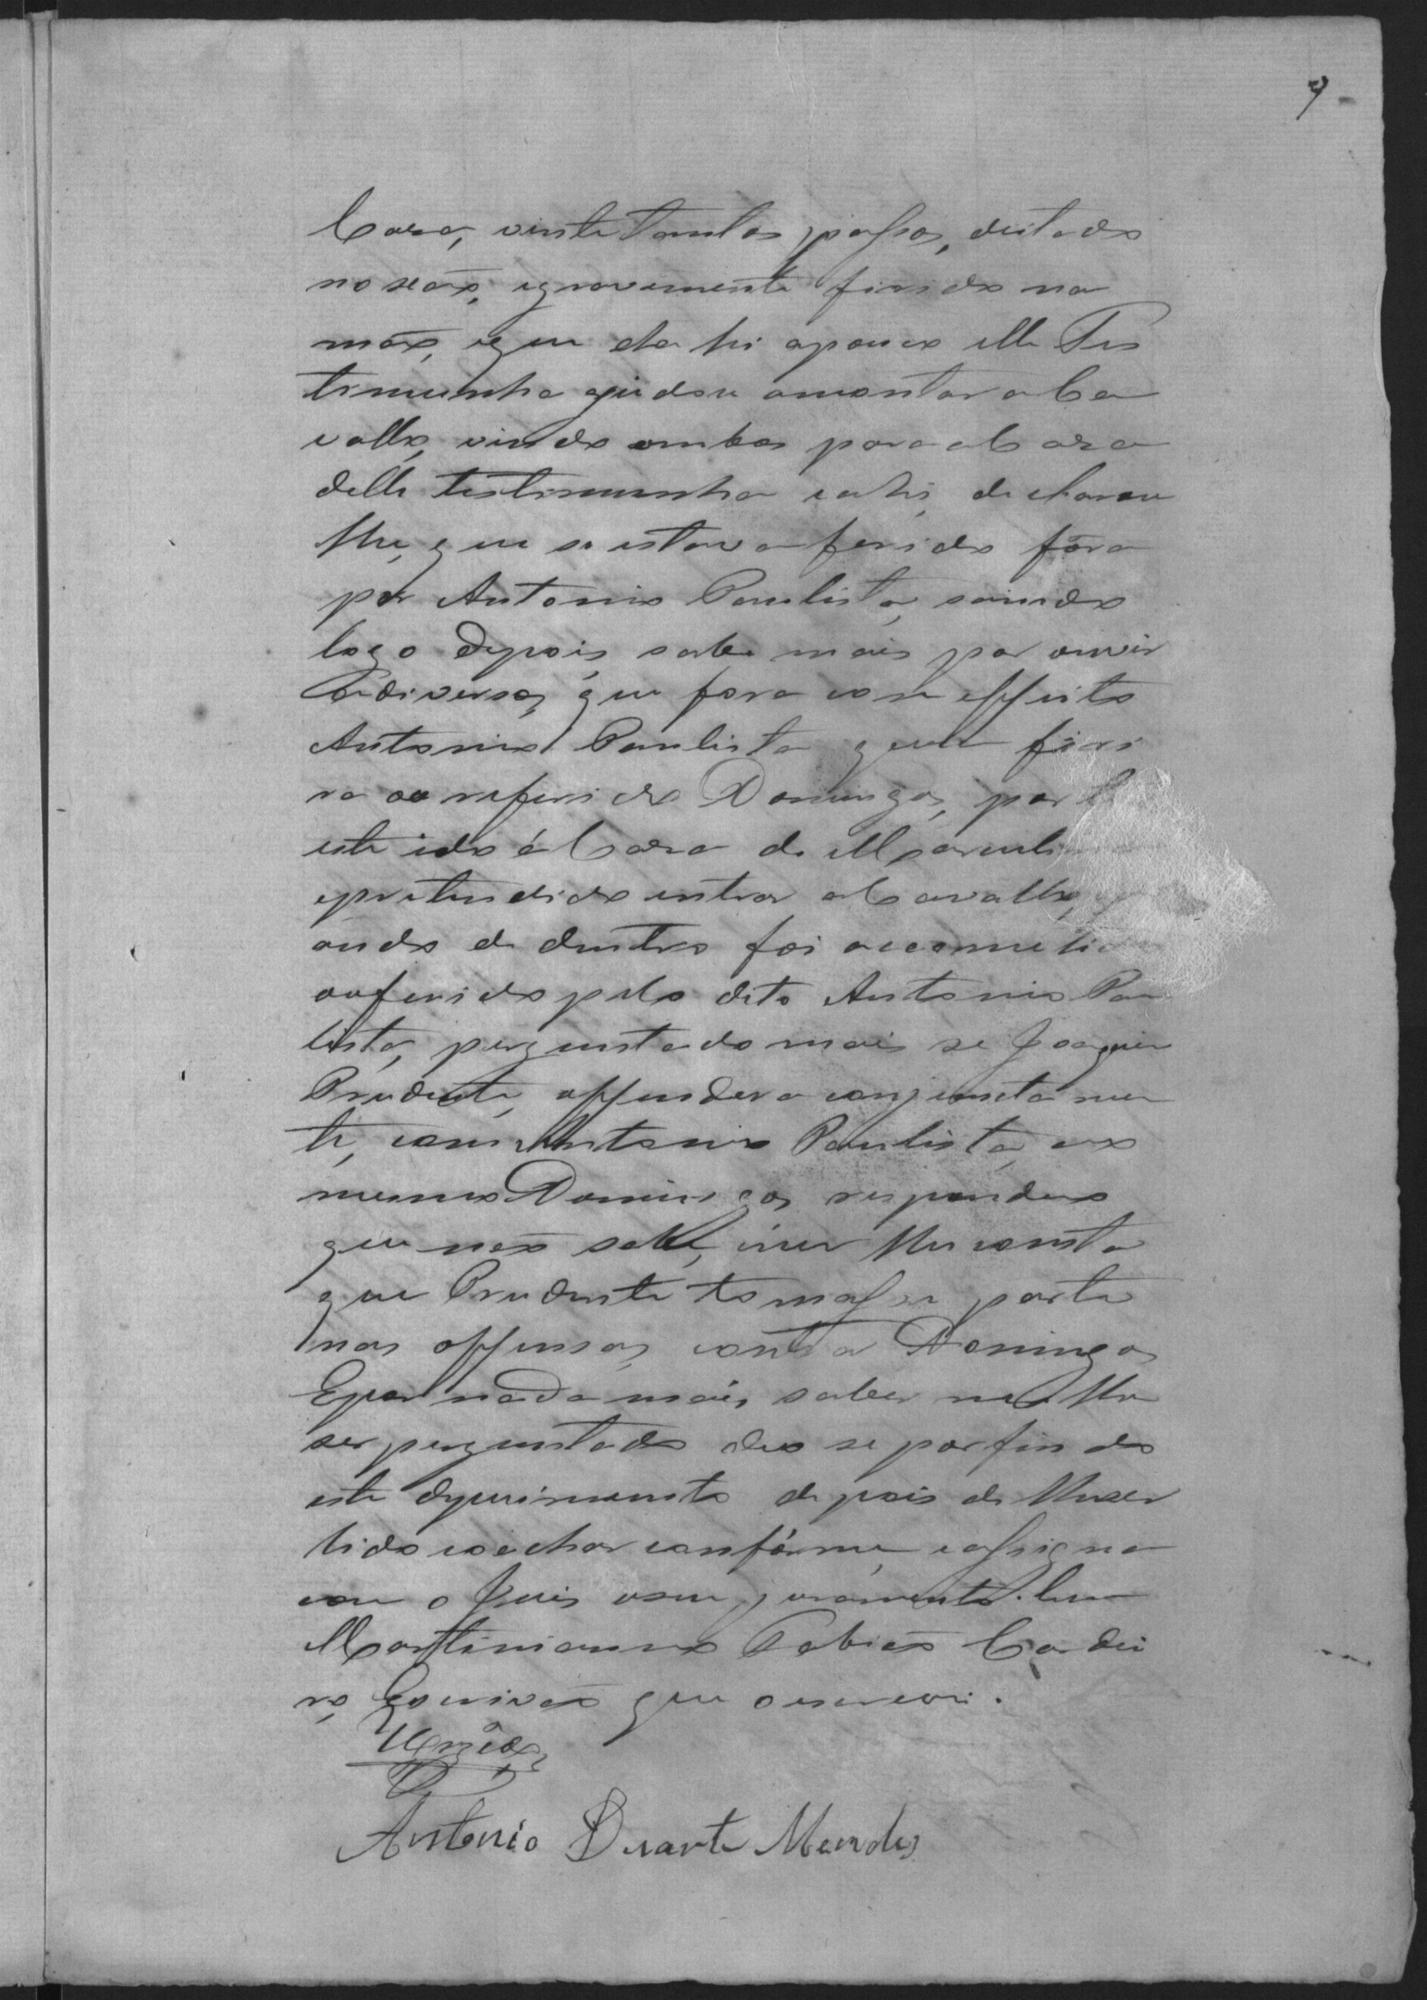 9
Casa, vinte tantos passos, deitado
no xaõ, egravemente firido na
maõ, eque dahi apouco elle Tes
timunha ajudou amontar a Ca
vallo, vindo ambos para a Casa
delle testimunha eahi, declarou
lhe, que se estava ferido fôra
por Antonio Paulista, saindo
logo depois, sabe mais por ouvir
adiversos, que fora com effeito
Antonio Paulista quem firi
ra ao referido Domingos, por
este ido á Casa de Marculi
epretendido entrar a Cavallo,
ando de dentro foi accometid
eoferido pelo dito Antonio Pau
lista, perguntado mais se Joaquim
Prudente, offendera conjuntamen
te, com Antonio Paulista, ao
mesmo Domingos respondeo
que naõ sabe, nem lhe consta
que Prudente tomasse parte
nas offensas, contra Domingos
Epor nada mais saber nem lhe
ser perguntado deo se por findo
este depuimento depois de lhe ser
lido eo achar confórme, eassigna
com o Juis oseu juramento. Eu
Martinianno Tobias Cordei
ro, Escrivaõ que o escrevi.
Antonio Duarte Mendes